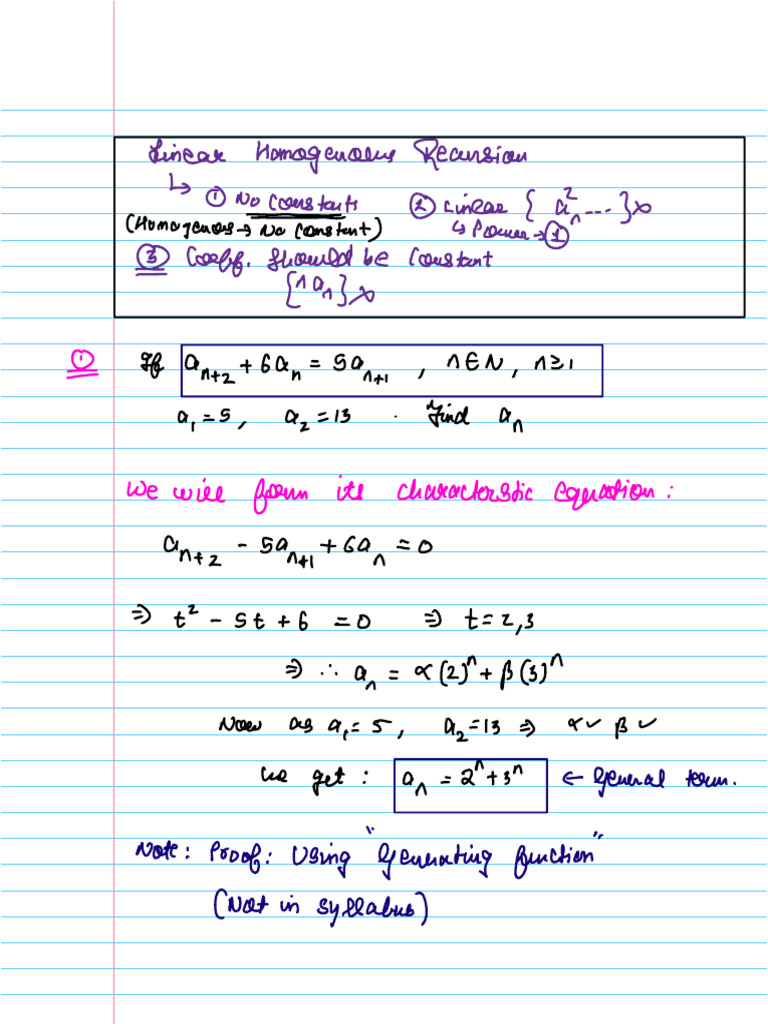 Linear Homogenous Recursion
↳ ① No Constants ② Linear { aₙ² .... } ×
(Homogenous → No Constant) ↳ Power → ①
③ Coeff. should be Constant
{n aₙ} ×
① If aₙ₊₂ + 6aₙ = 5aₙ₊₁ , n ∈ N, n ≥ 1
a₁ = 5, a₂ = 13 . Find aₙ
We will form its characteristic Equation :
aₙ₊₂ - 5aₙ₊₁ + 6aₙ = 0
⇒ t² - 5t + 6 = 0 ⇒ t = 2, 3
⇒ ∴ aₙ = α(2)ⁿ + β(3)ⁿ
Now as a₁ = 5, a₂ = 13 ⇒ α✓ β✓
we get : aₙ = 2ⁿ + 3ⁿ ← General term.
Note : Proof : Using "Generating function"
(Not in syllabus)